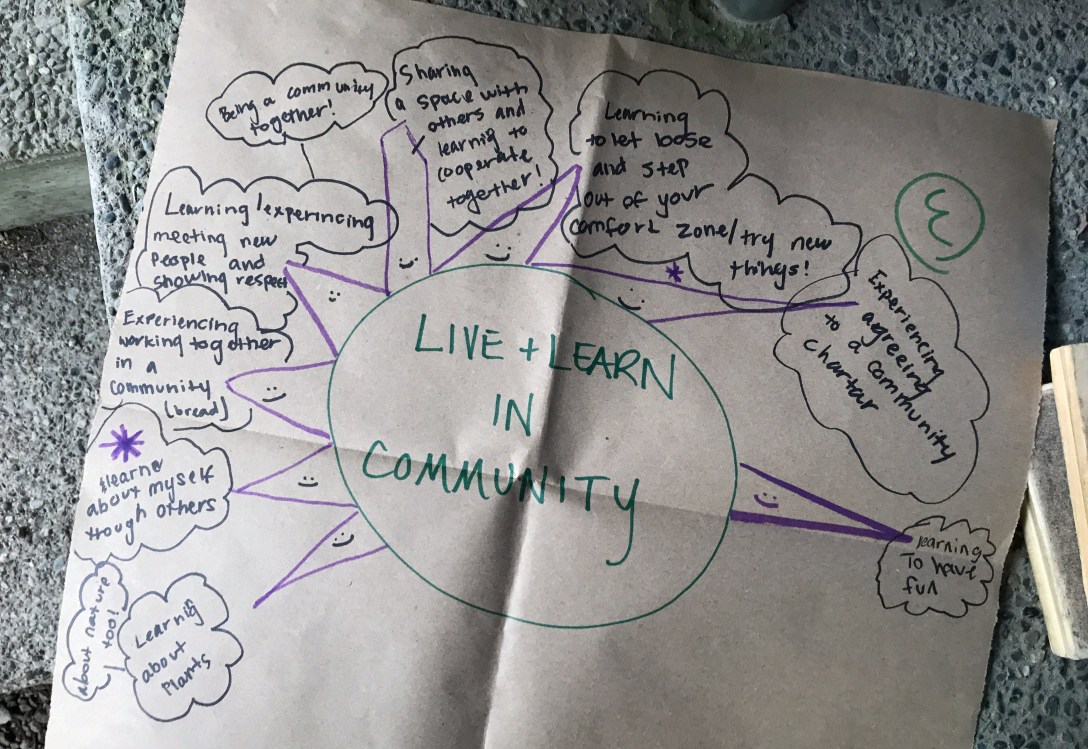 Being a community
together!
Sharing
a space with
others and
learnig to
cooperate
together!
Learning
to let loose
and step
out of your
comfort zone/try new
things!
Learning/experincing
meeting new
people and
showing respect
Experiencing
agreeing
to a community
chartar
Experiencing
working together
in a
community
(bread)
LIVE + LEARN
IN
COMMUNITY
learne
about myself
trough others
learning
To have
fun
about nature
too!
Learnig
about
Plants